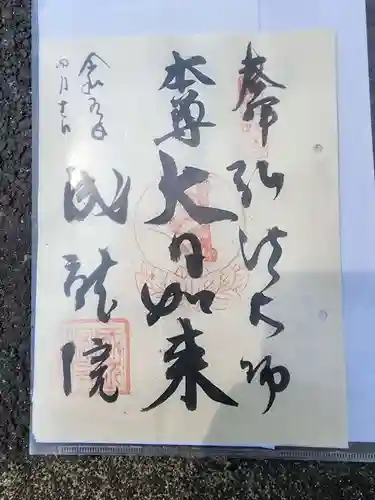 奉拝 弘法大師
本尊 大日如来
令和五年
四月十一日
成就院